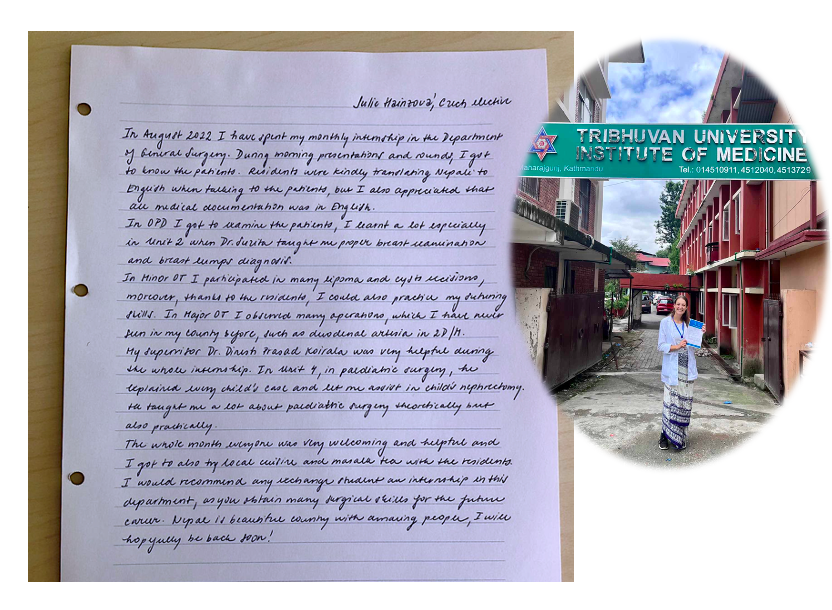 Julie Hainzová, Czech elective
In August 2022 I have spent my monthly internship in the Department
of General Surgery. During morning presentations and rounds, I got
to know the patients. Residents were kindly translating Nepali to
English when talking to the patients, but I also appreciated that
all medical documentation was in English.
In OPD I got to examine the patients, I learnt a lot especially
in Unit 2 when Dr. Sujita taught me proper breast examination
and breast lumps diagnosis.
In Minor OT I participated in many lipoma and cysts excisions,
moreover, thanks to the residents, I could also practice my suturing
skills. In Major OT I observed many operations, which I have never
seen in my country before, such as duodenal atresia in 2D/M.
My supervisor Dr. Dinesh Prasad Koirala was very helpful during
the whole internship. In Unit 4, in paediatric surgery, he
explained every child's case and let me assist in child's nephrectomy.
He taught me a lot about paediatric surgery theoretically but
also practically.
The whole month everyone was very welcoming and helpful and
I got to also try local cuisine and masala tea with the residents.
I would recommend any exchange student an internship in this
department, as you obtain many surgical skills for the future
career. Nepal is beautiful country with amazing people, I will
hopefully be back soon!
TRIBHUVAN UNIVERSITY
INSTITUTE OF MEDICINE
anarajgunj, Kathmandu
Tel.: 014510911, 4512040, 4513729